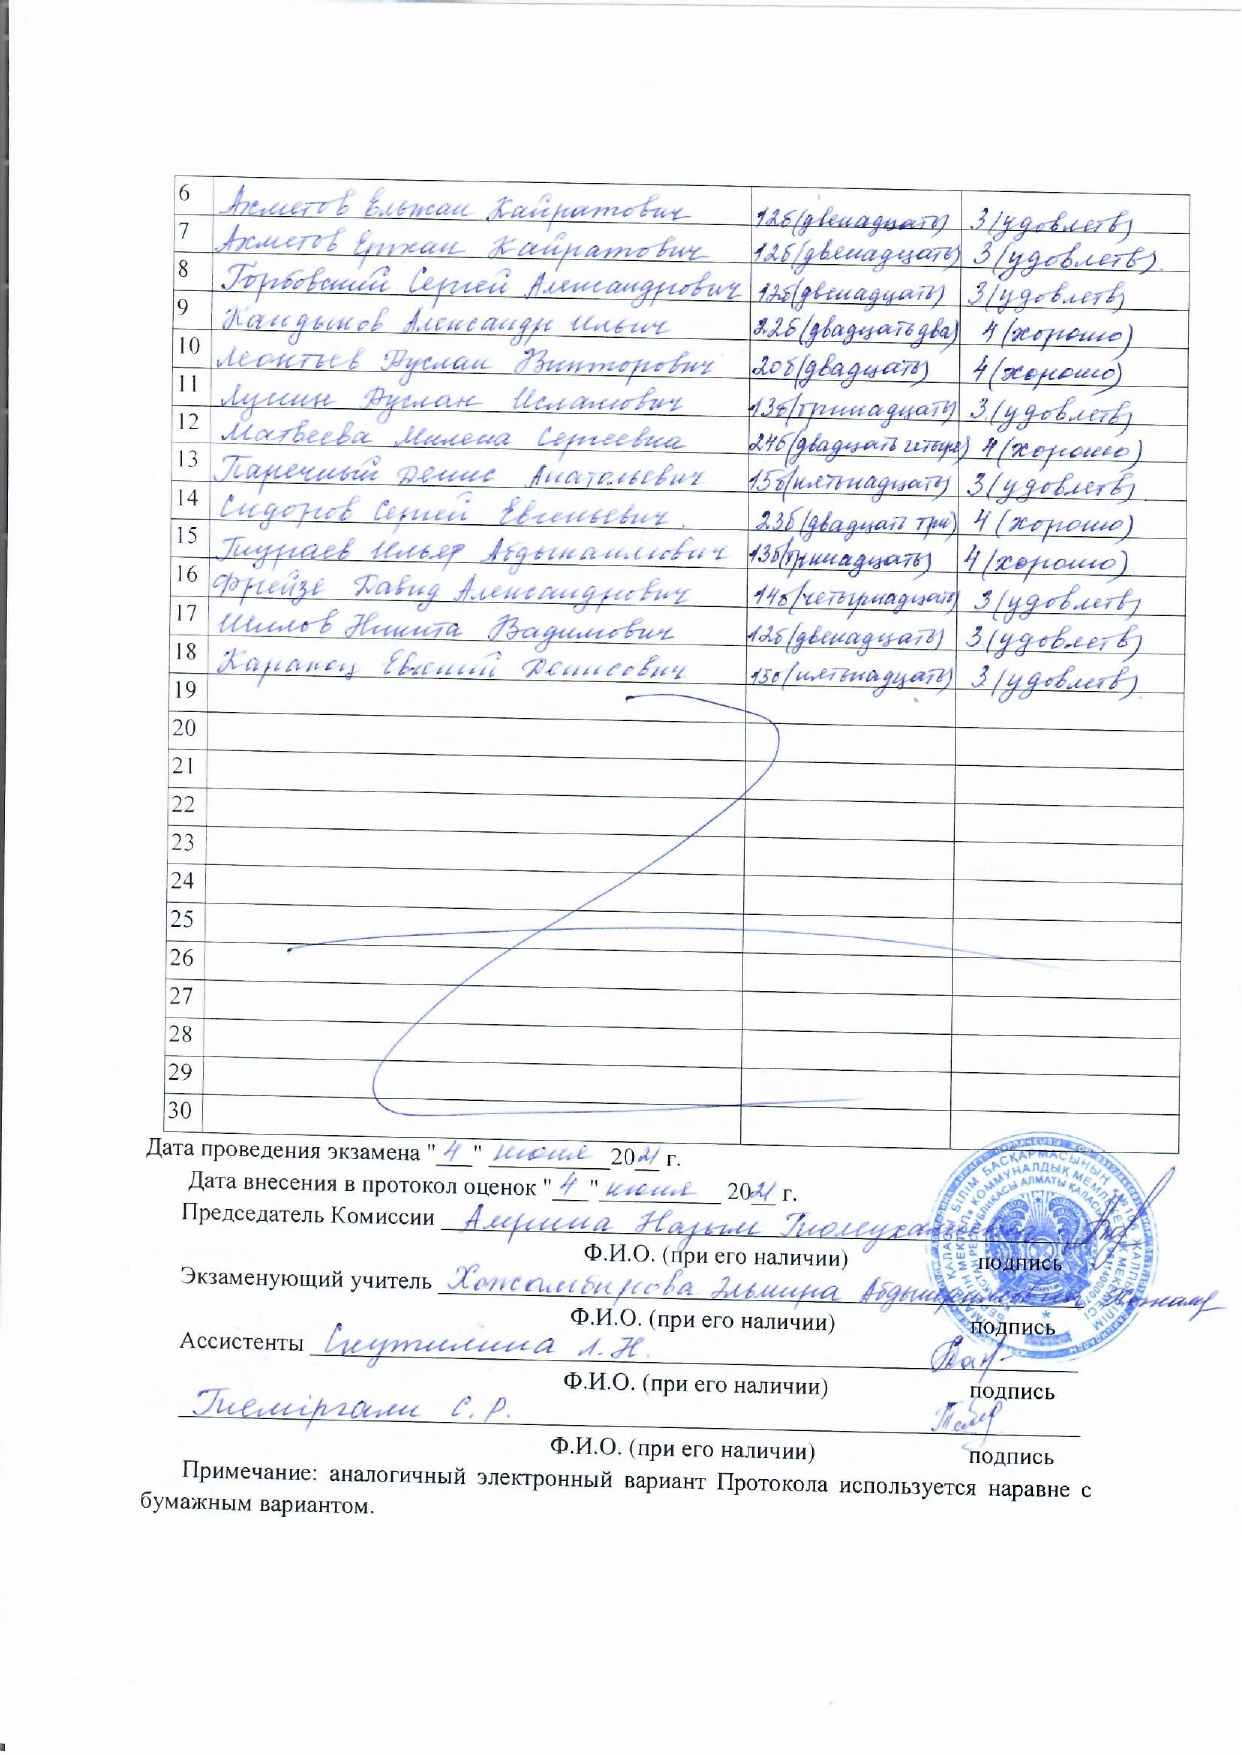 6 Ахметов Ельжан Кайратович 12б(двенадцать) 3(удовлетв)
7 Ахметов Ержан Кайратович 12б(двенадцать) 3(удовлетв).
8 Горбовский Сергей Александрович 12б(двенадцать) 3(удовлетв)
9 Кандыков Александр Ильич 22б(двадцать два) 4(хорошо)
10 Леонтьев Руслан Викторович 20б(двадцать) 4(хорошо)
11 Лукин Руслан Исламович 13б(тринадцать) 3(удовлетв)
12 Матвеева Милена Сергеевна 24б(двадцать четыре) 4(хорошо)
13 Паречный Денис Анатольевич 15б(пятьнадцать) 3(удовлетв).
14 Сидоров Сергей Евгеньевич. 23б(двадцать три) 4(хорошо)
15 Тиураев Ильяр Абдыкаимович 13б(тринадцать) 4(хорошо)
16 Фрейзе Давид Александрович 14б(четырнадцать) 3(удовлетв)
17 Шилов Никита Вадимович 12б(двенадцать) 3(удовлетв)
18 Карапец Евгений Денисович 15б(пятьнадцать) 3(удовлетв).
19
20
21
22
23
24
25
26
27
28
29
30
Дата проведения экзамена "4" июня 2021 г.
Дата внесения в протокол оценок "4" июня 2021 г.
Председатель Комиссии Амрина Назым
Ф.И.О. (при его наличии) подпись
Экзаменующий учитель Хожамбирова Эльмира
Ф.И.О. (при его наличии) подпись
Ассистенты Скутилина Л.Н.
Ф.И.О. (при его наличии) подпись
Темірғали С.Р.
Ф.И.О. (при его наличии) подпись
Примечание: аналогичный электронный вариант Протокола используется наравне с
бумажным вариантом.